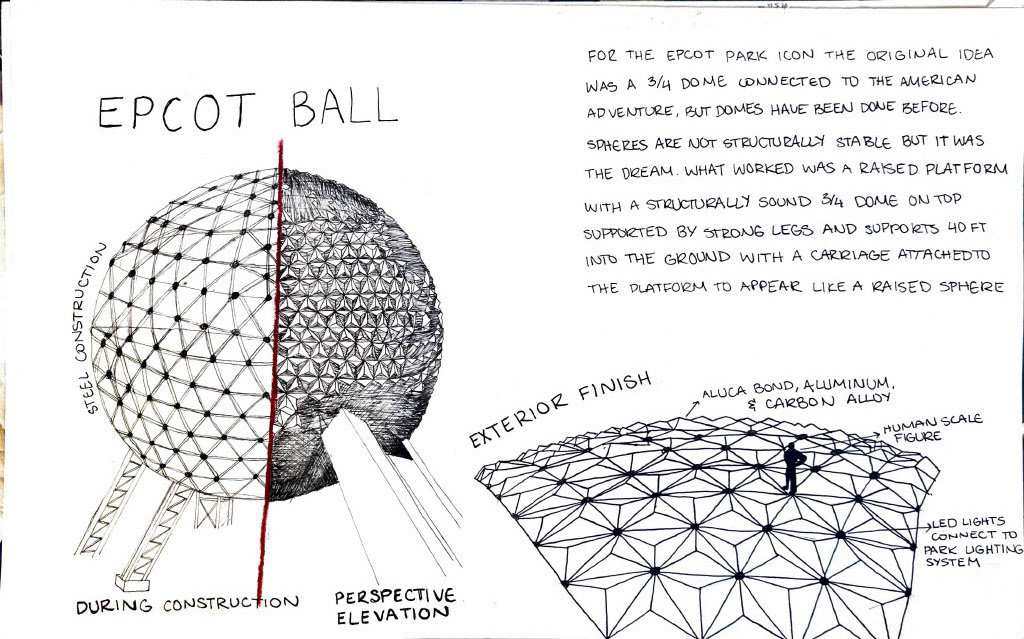 EPCOT BALL
FOR THE EPCOT PARK ICON THE ORIGINAL IDEA
WAS A 3/4 DOME CONNECTED TO THE AMERICAN
ADVENTURE, BUT DOMES HAVE BEEN DONE BEFORE.
SPHERES ARE NOT STRUCTURALLY STABLE BUT IT WAS
THE DREAM. WHAT WORKED WAS A RAISED PLATFORM
WITH A STRUCTURALLY SOUND 3/4 DOME ON TOP
SUPPORTED BY STRONG LEGS AND SUPPORTS 40 FT
INTO THE GROUND WITH A CARRIAGE ATTACHED TO
THE PLATFORM TO APPEAR LIKE A RAISED SPHERE
STEEL CONSTRUCTION
DURING CONSTRUCTION
PERSPECTIVE
ELEVATION
EXTERIOR FINISH
ALUCA BOND, ALUMINUM,
& CARBON ALLOY
HUMAN SCALE
FIGURE
LED LIGHTS
CONNECT TO
PARK LIGHTING
SYSTEM